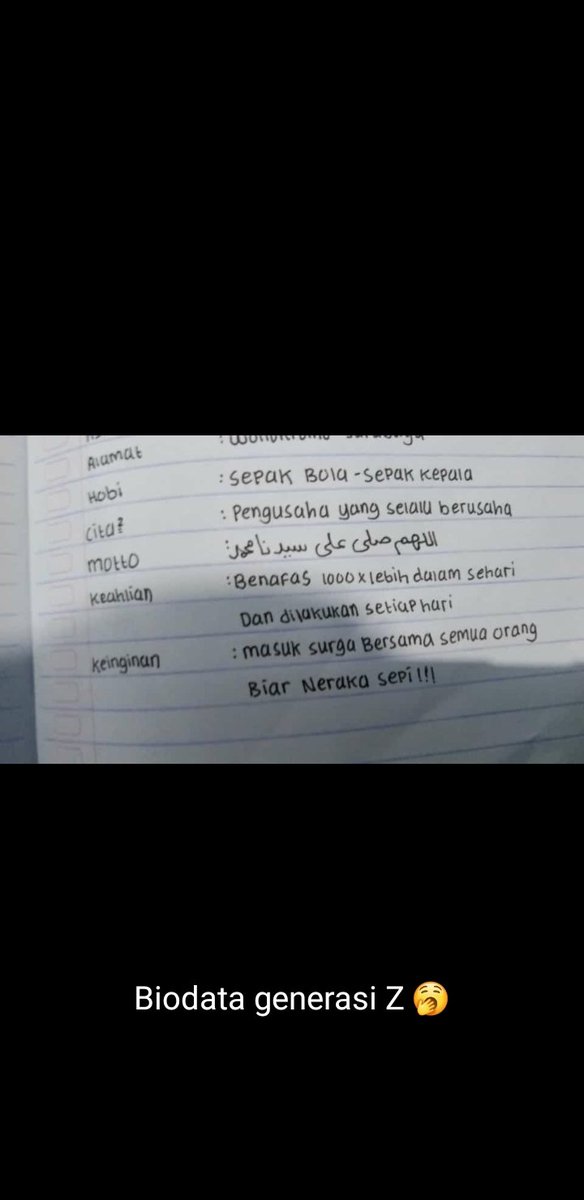 Alamat
Hobi : Sepak Bola - Sepak Kepala
Cita² : Pengusaha yang selalu berusaha
Motto : اللهم صلى على سيدنا محمد
Keahlian : Benafas 1000 x lebih dalam sehari
Dan dilakukan setiap hari
Keinginan : masuk surga Bersama semua orang
Biar Neraka Sepi!!!
Biodata generasi Z 🥱